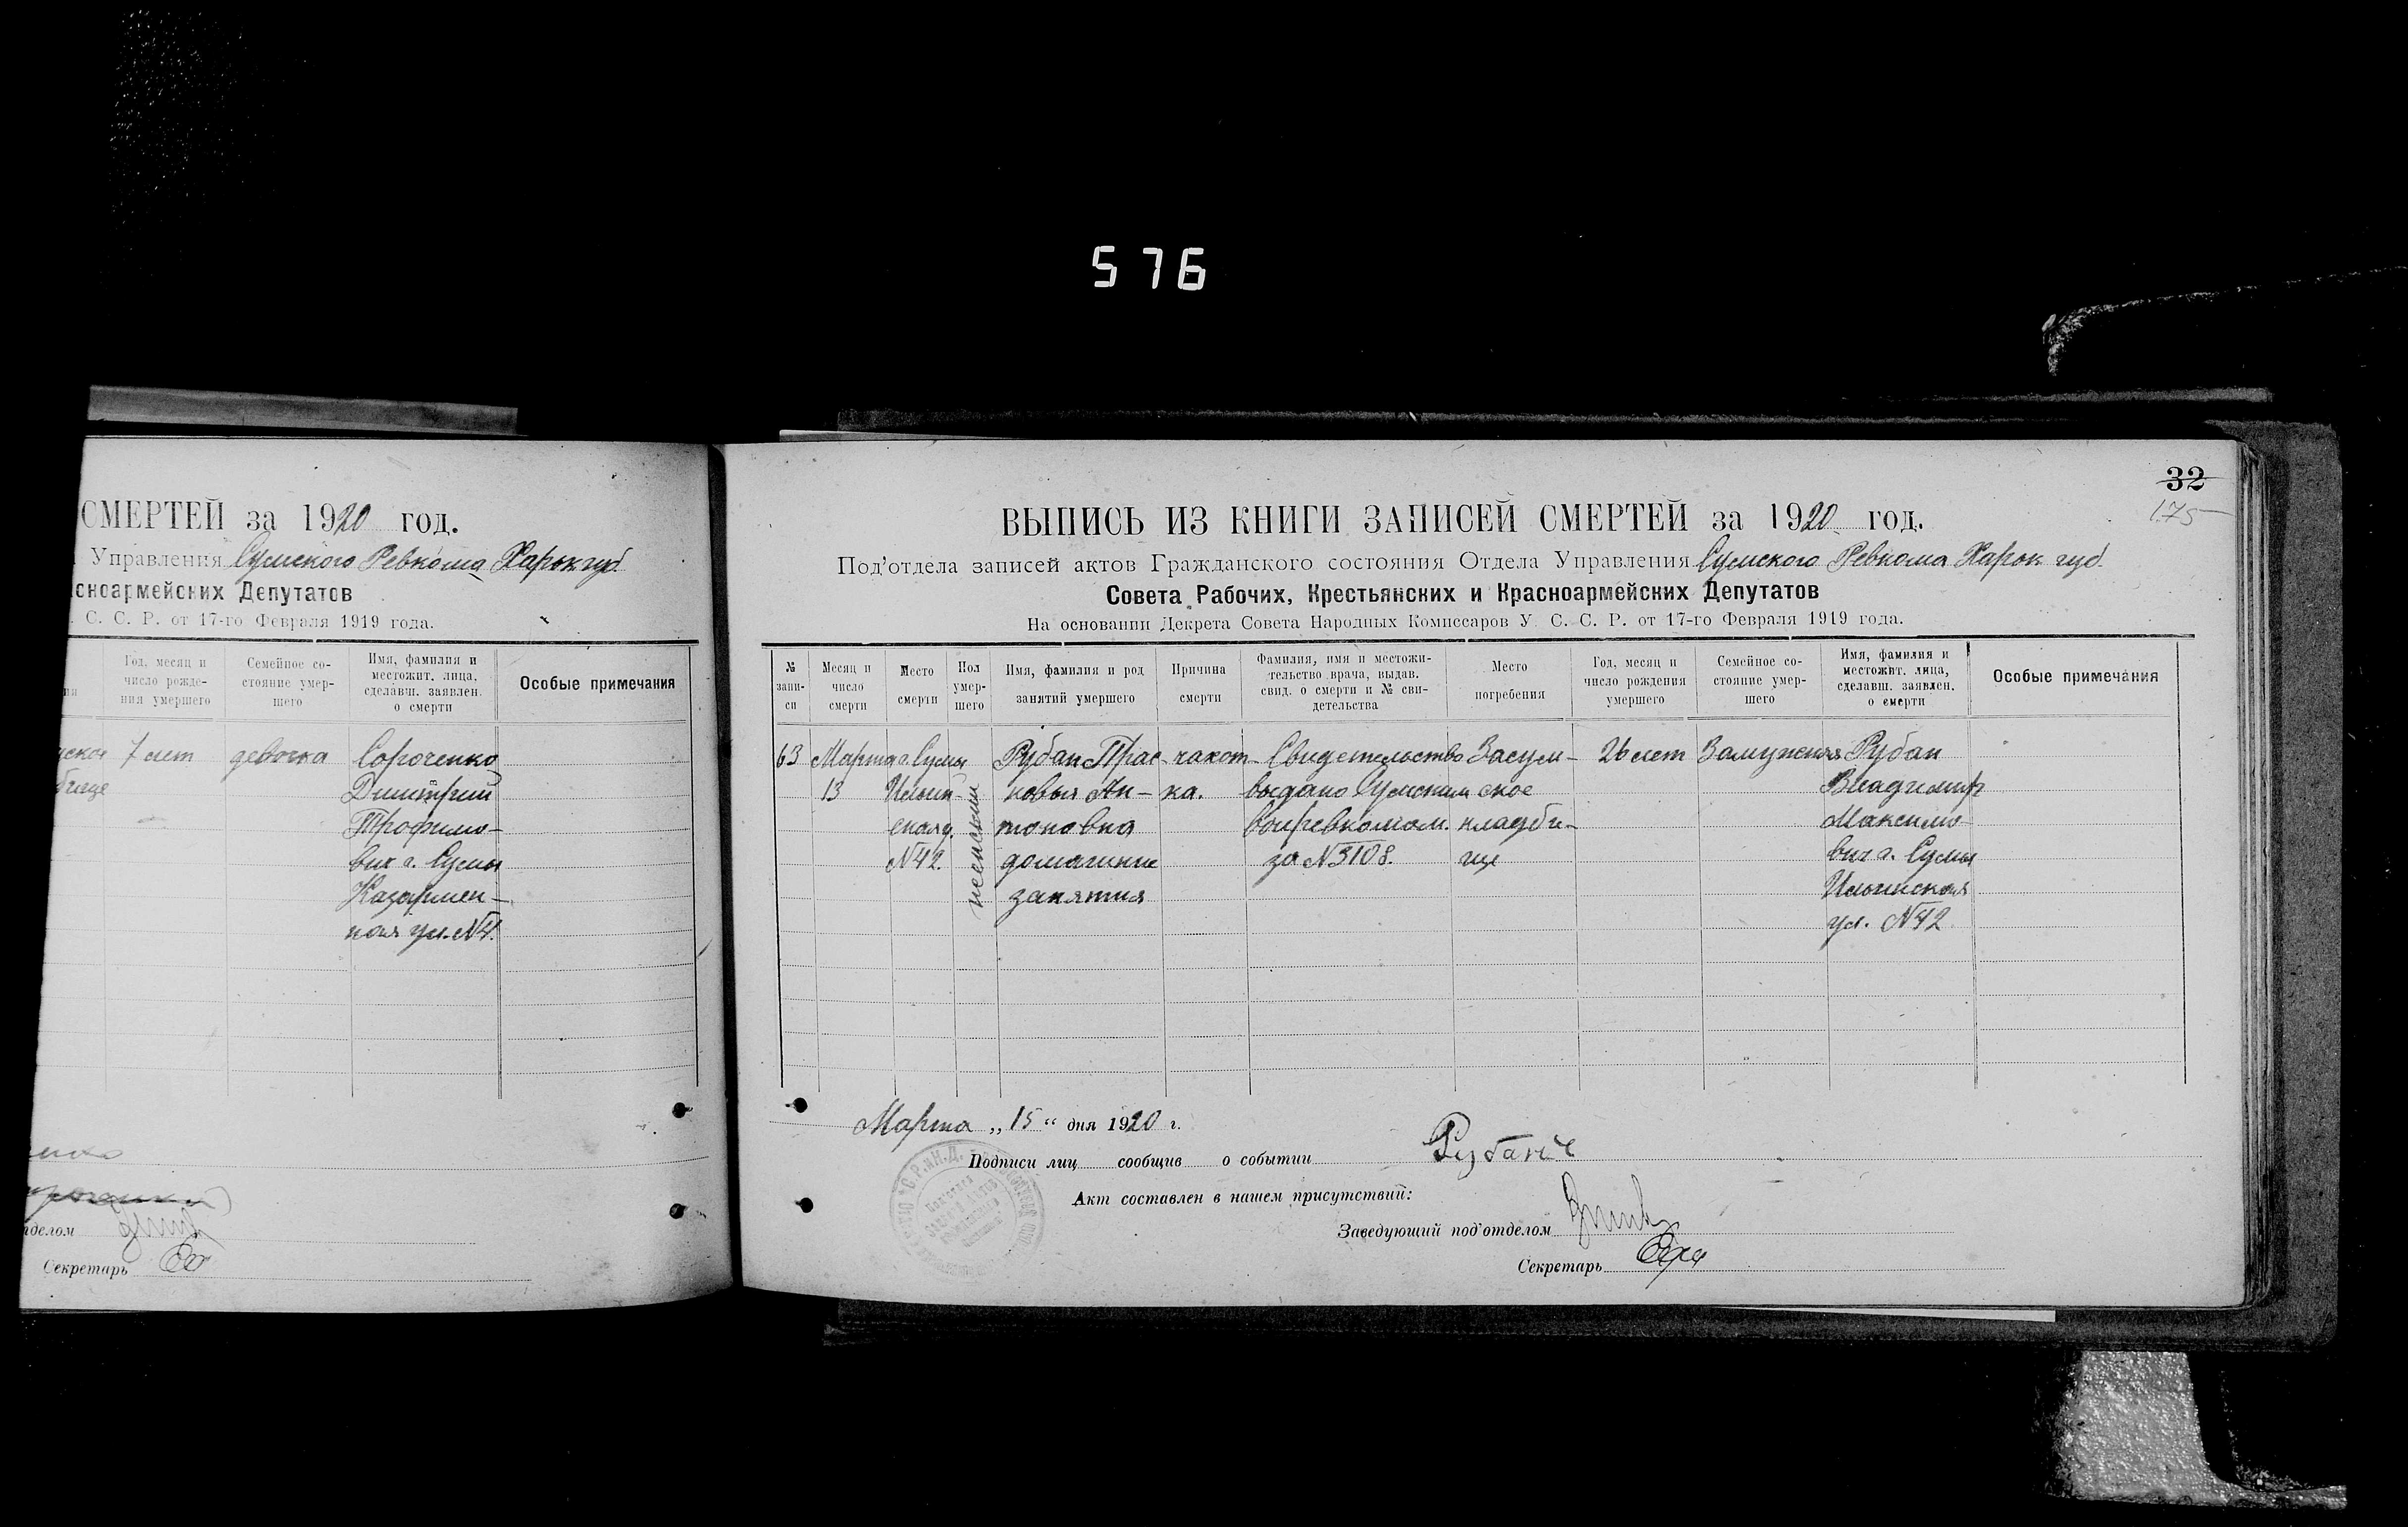 576
СМЕРТЕЙ за 1920 год.
Управления Сумского Ревкома Харьк губ
сноармейских Депутатов
С. С. Р. от 17-го Февраля 1919 года.
Год, месяц и число рожде- ния умершего
Семейное со- стояние умер- шего
Имя, фамилия и местожит. лица, сделавш. заявлен. о смерти
Особые примечания
7 лет девочка Сороченко
Димитрий
Трофимо-
вич г. Сумы
Казармен-
ная ул. №4.
тделом
Секретарь
32
175
ВЫПИСЬ ИЗ КНИГИ ЗАПИСЕЙ СМЕРТЕЙ за 1920 год.
Под'отдела записей актов Гражданского состояния Отдела Управления Сумского Ревкома Харьк губ.
Совета Рабочих, Крестьянских и Красноармейских Депутатов
На основании Декрета Совета Народных Комиссаров У. С. С. Р. от 17-го Февраля 1919 года.
№ запи- си
Месяц и число смерти
Место смерти
Пол умер- шего
Имя, фамилия и род занятий умершего
Причина смерти
Фамилия, имя и местожи- тельство врача, выдав. свид. о смерти и № сви- детельства
Место погребения
Год, месяц и число рождения умершего
Семейное со- стояние умер- шего
Имя, фамилия и местожит. лица, сделавш. заявлен. о смерти
Особые примечания
63 Марта г. Сумы Рубан Прас- чахот- Свидетельство Засум- 26 лет Замужняя Рубан
13 Ильин- ковья Ан- ка. выдано Сумским ское Владимир
ская у. тоновна Воиревкомом. кладби- Максимо-
№42. домашние за №3108. ще вич г. Сумы
занятия Ильинская
ул. №42
женский
Марта „15“ дня 1920 г.
Подписи лиц сообщив о событии Рубанъ
Акт составлен в нашем присутствий:
Заведующий под'отделом
Секретарь